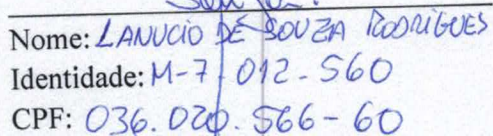 Nome: LANUCIO DE SOUZA RODRIGUES
Identidade: M-7.012-560
CPF: 036.020.566-60